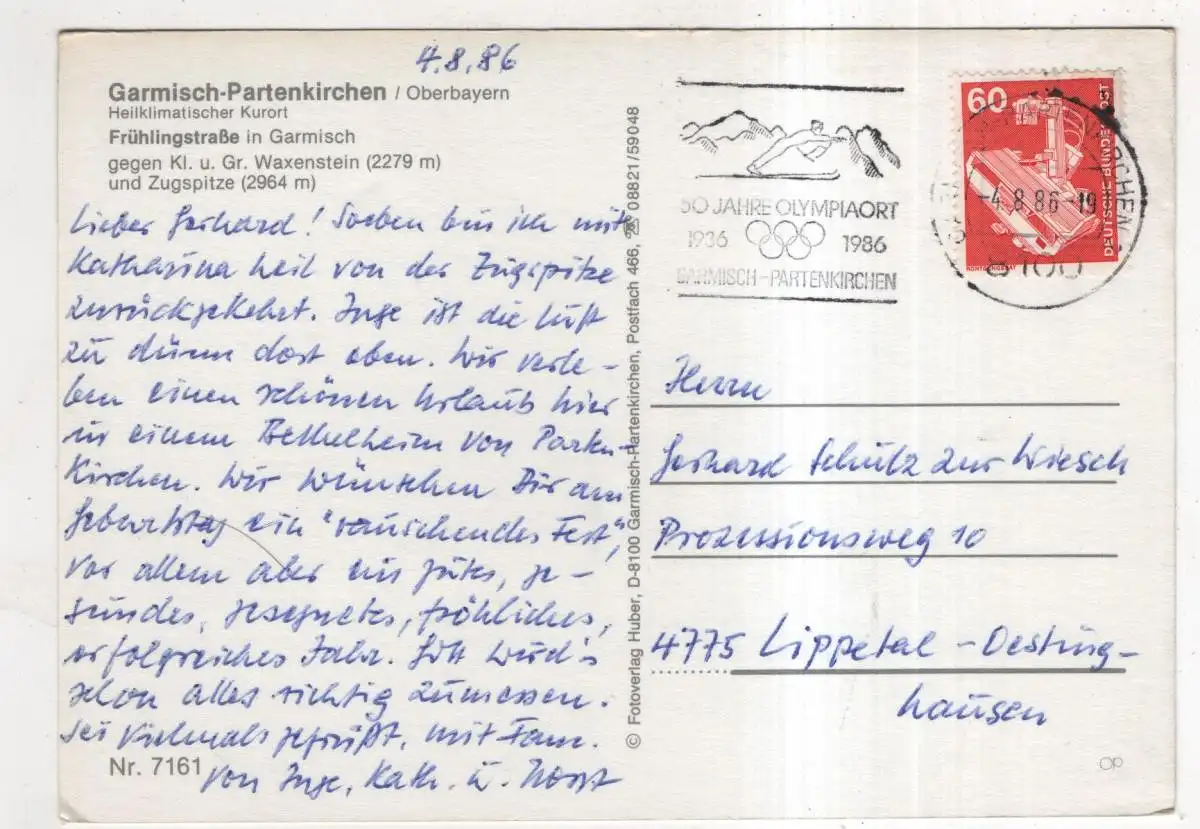 4.8.86
Garmisch-Partenkirchen / Oberbayern
Heilklimatischer Kurort
Frühlingstraße in Garmisch
gegen Kl. u. Gr. Waxenstein (2279 m)
und Zugspitze (2964 m)
Lieber Gerhard! Soeben bin ich mit
Katharina heil von der Zugspitze
zurückgekehrt. Inge ist die Luft
zu dünn dort oben. Wir verle-
ben einen schönen Urlaub hier
in einem Bethelheim von Parten-
kirchen. Wir wünschen Dir am
Geburtstag ein "rauschendes Fest",
vor allem aber ein gutes, ge-
sundes, gesegnetes, fröhliches,
erfolgreiches Jahr. Gott wird's
schon alles richtig zumessen.
Sei vielmals gegrüßt, mit Fam.
von Inge, Kath. u. Horst
Nr. 7161
© Fotoverlag Huber, D-8100 Garmisch-Partenkirchen, Postfach 466, ☎ 08821/59048
50 JAHRE OLYMPIAORT
1936 1986
GARMISCH-PARTENKIRCHEN
60
DEUTSCHE BUNDESPOST
RÖNTGENGERÄT
-4.8.86-19
8100
Herrn
Gerhard Schulz zur Wiesch
Prozessionsweg 10
4775 Lippetal-Oesting-
hausen
OP